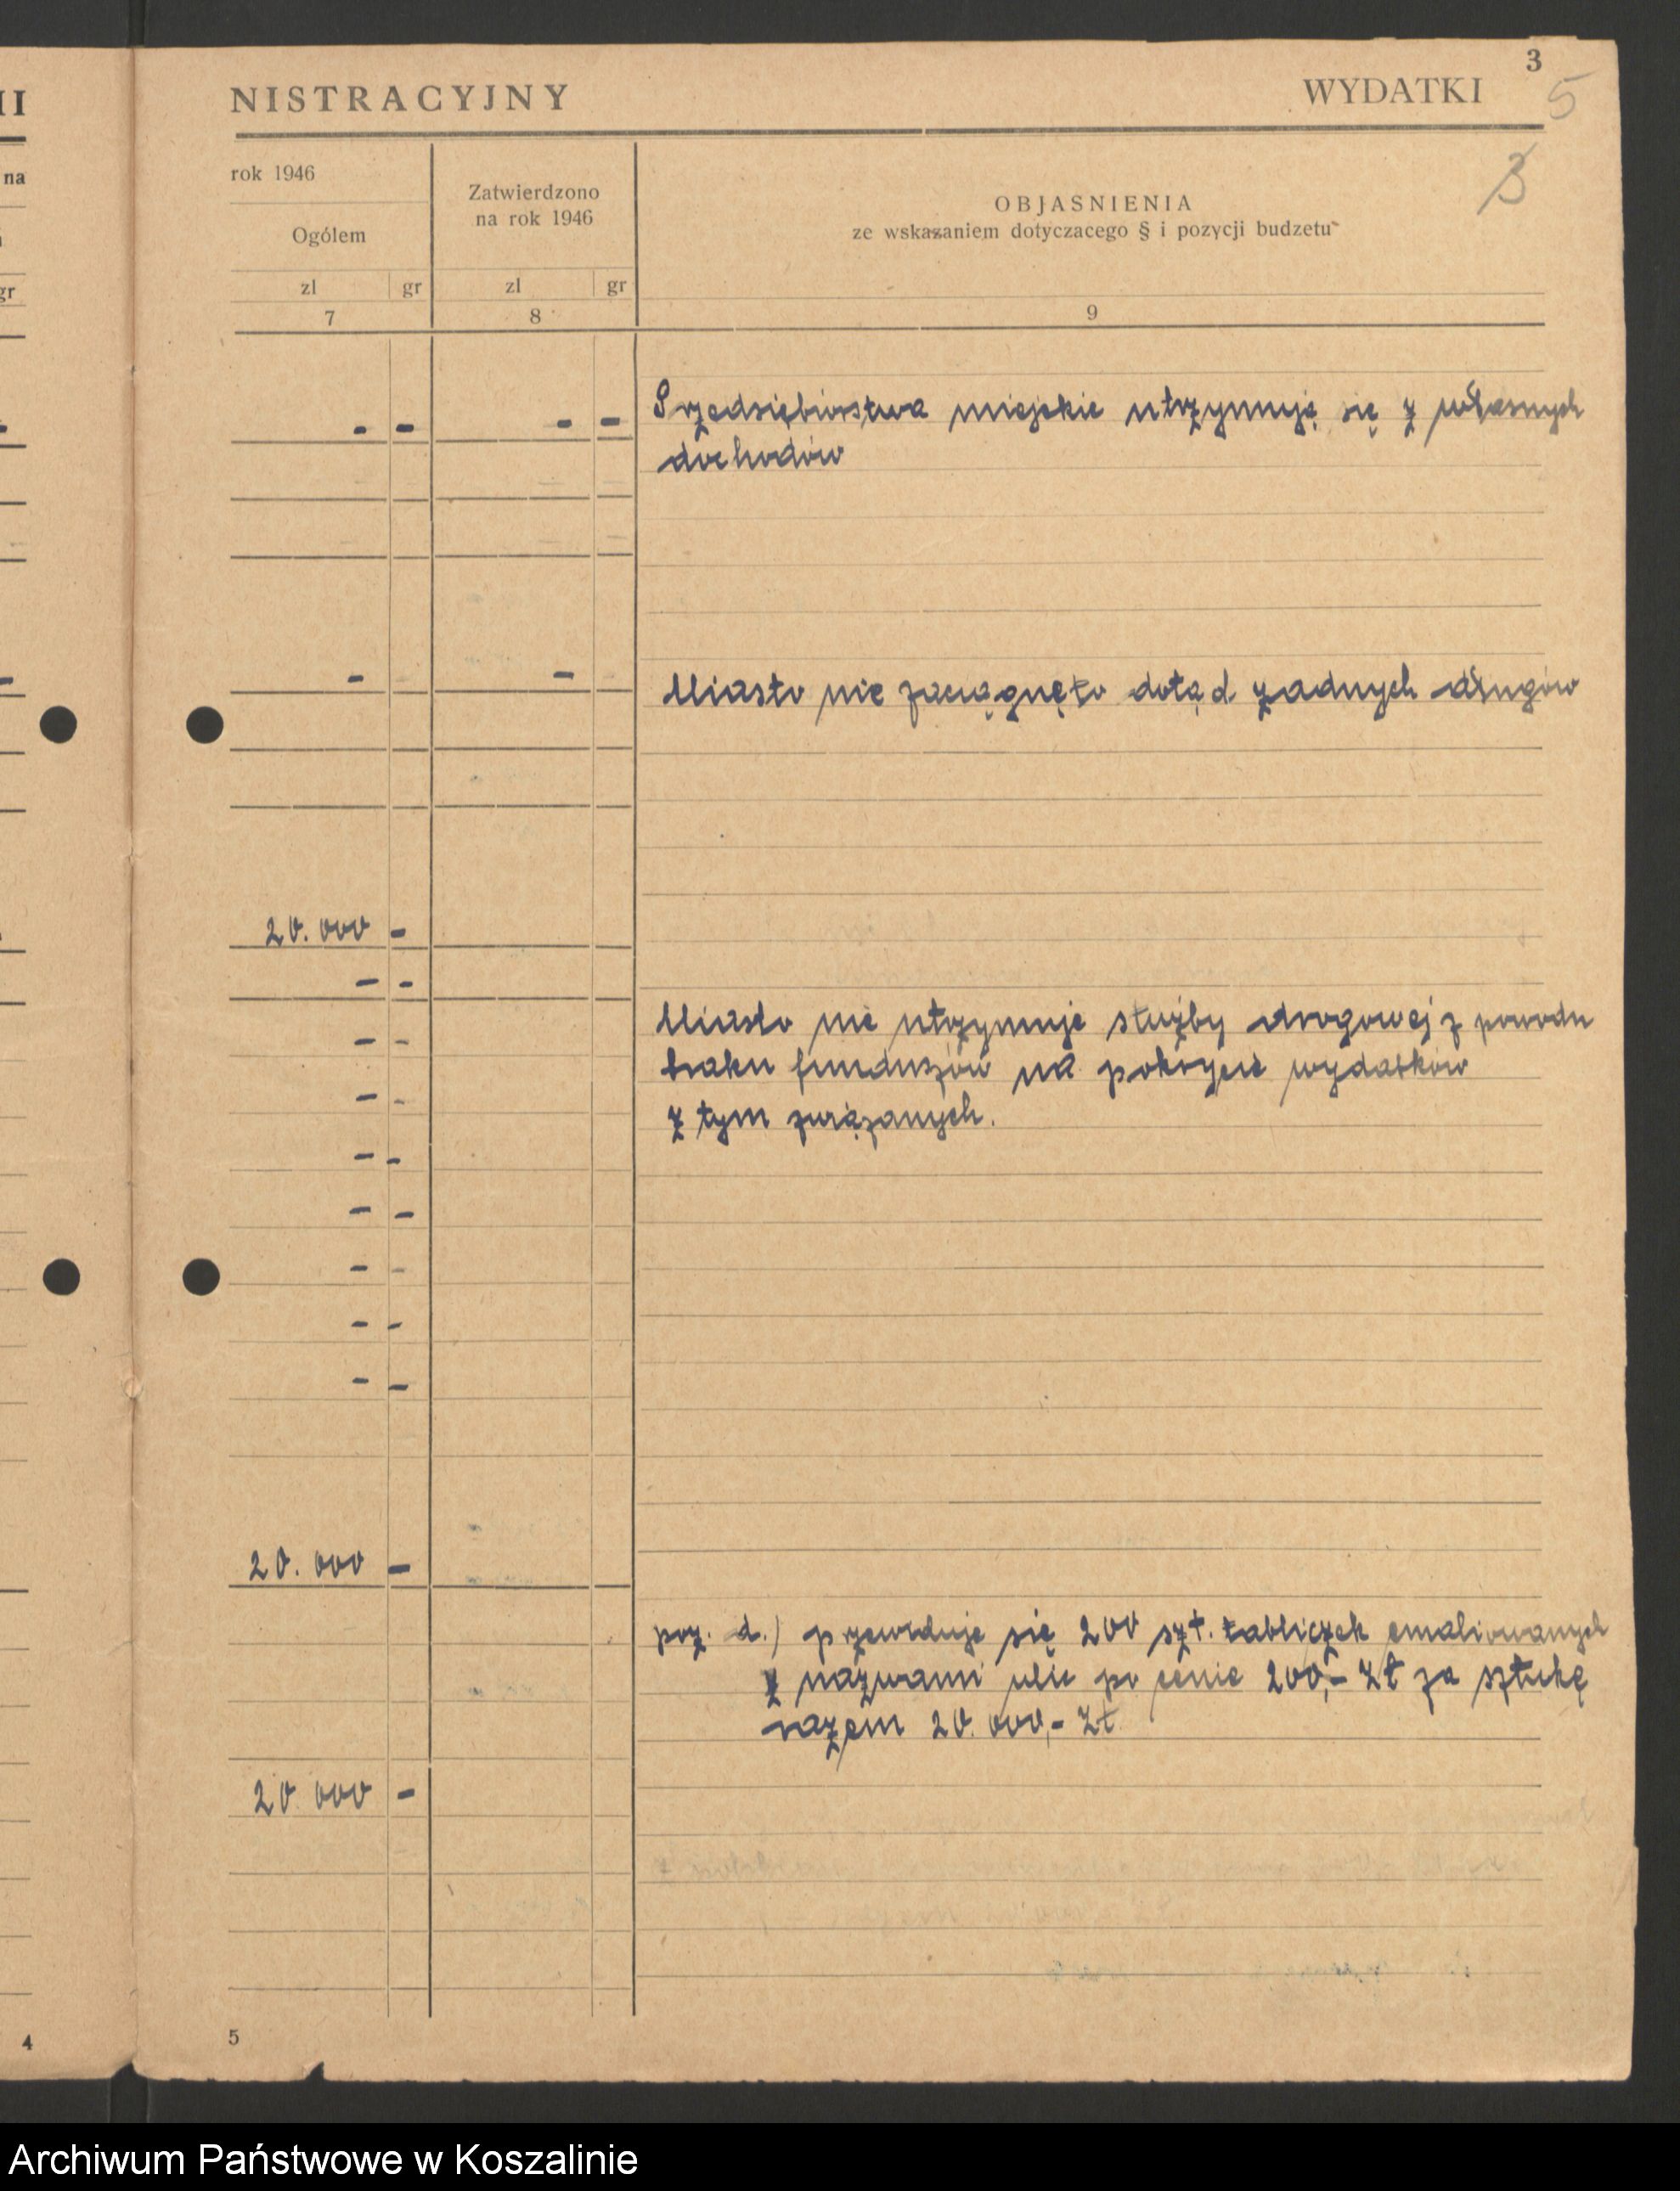 II
3
NISTRACYJNY
WYDATKI
5
na
3
rok 1946
Zatwierdzono
na rok 1946
Ogólem
OBJASNIENIA
ze wskazaniem dotyczacego § i pozycji budzetu
gr
zl gr zl gr
7 8 9
- - - - Przedsiębiorstwa miejskie utrzymują się z własnych
dochodów
- - Miasto nie zaciągnęło dotąd żadnych długów
20.000 -
- -
Miasto nie utrzymuje służby drogowej z powodu
- -
braku funduszów na pokrycie wydatków
- -
z tym związanych.
- -
- -
- -
- -
- -
20.000 -
poz. d.) przewiduje się 200 szt. tabliczek emaliowanych
z nazwami ulic po cenie 200,- zł za sztukę
razem 20.000,- zł
20 000 -
4
5
Archiwum Państwowe w Koszalinie